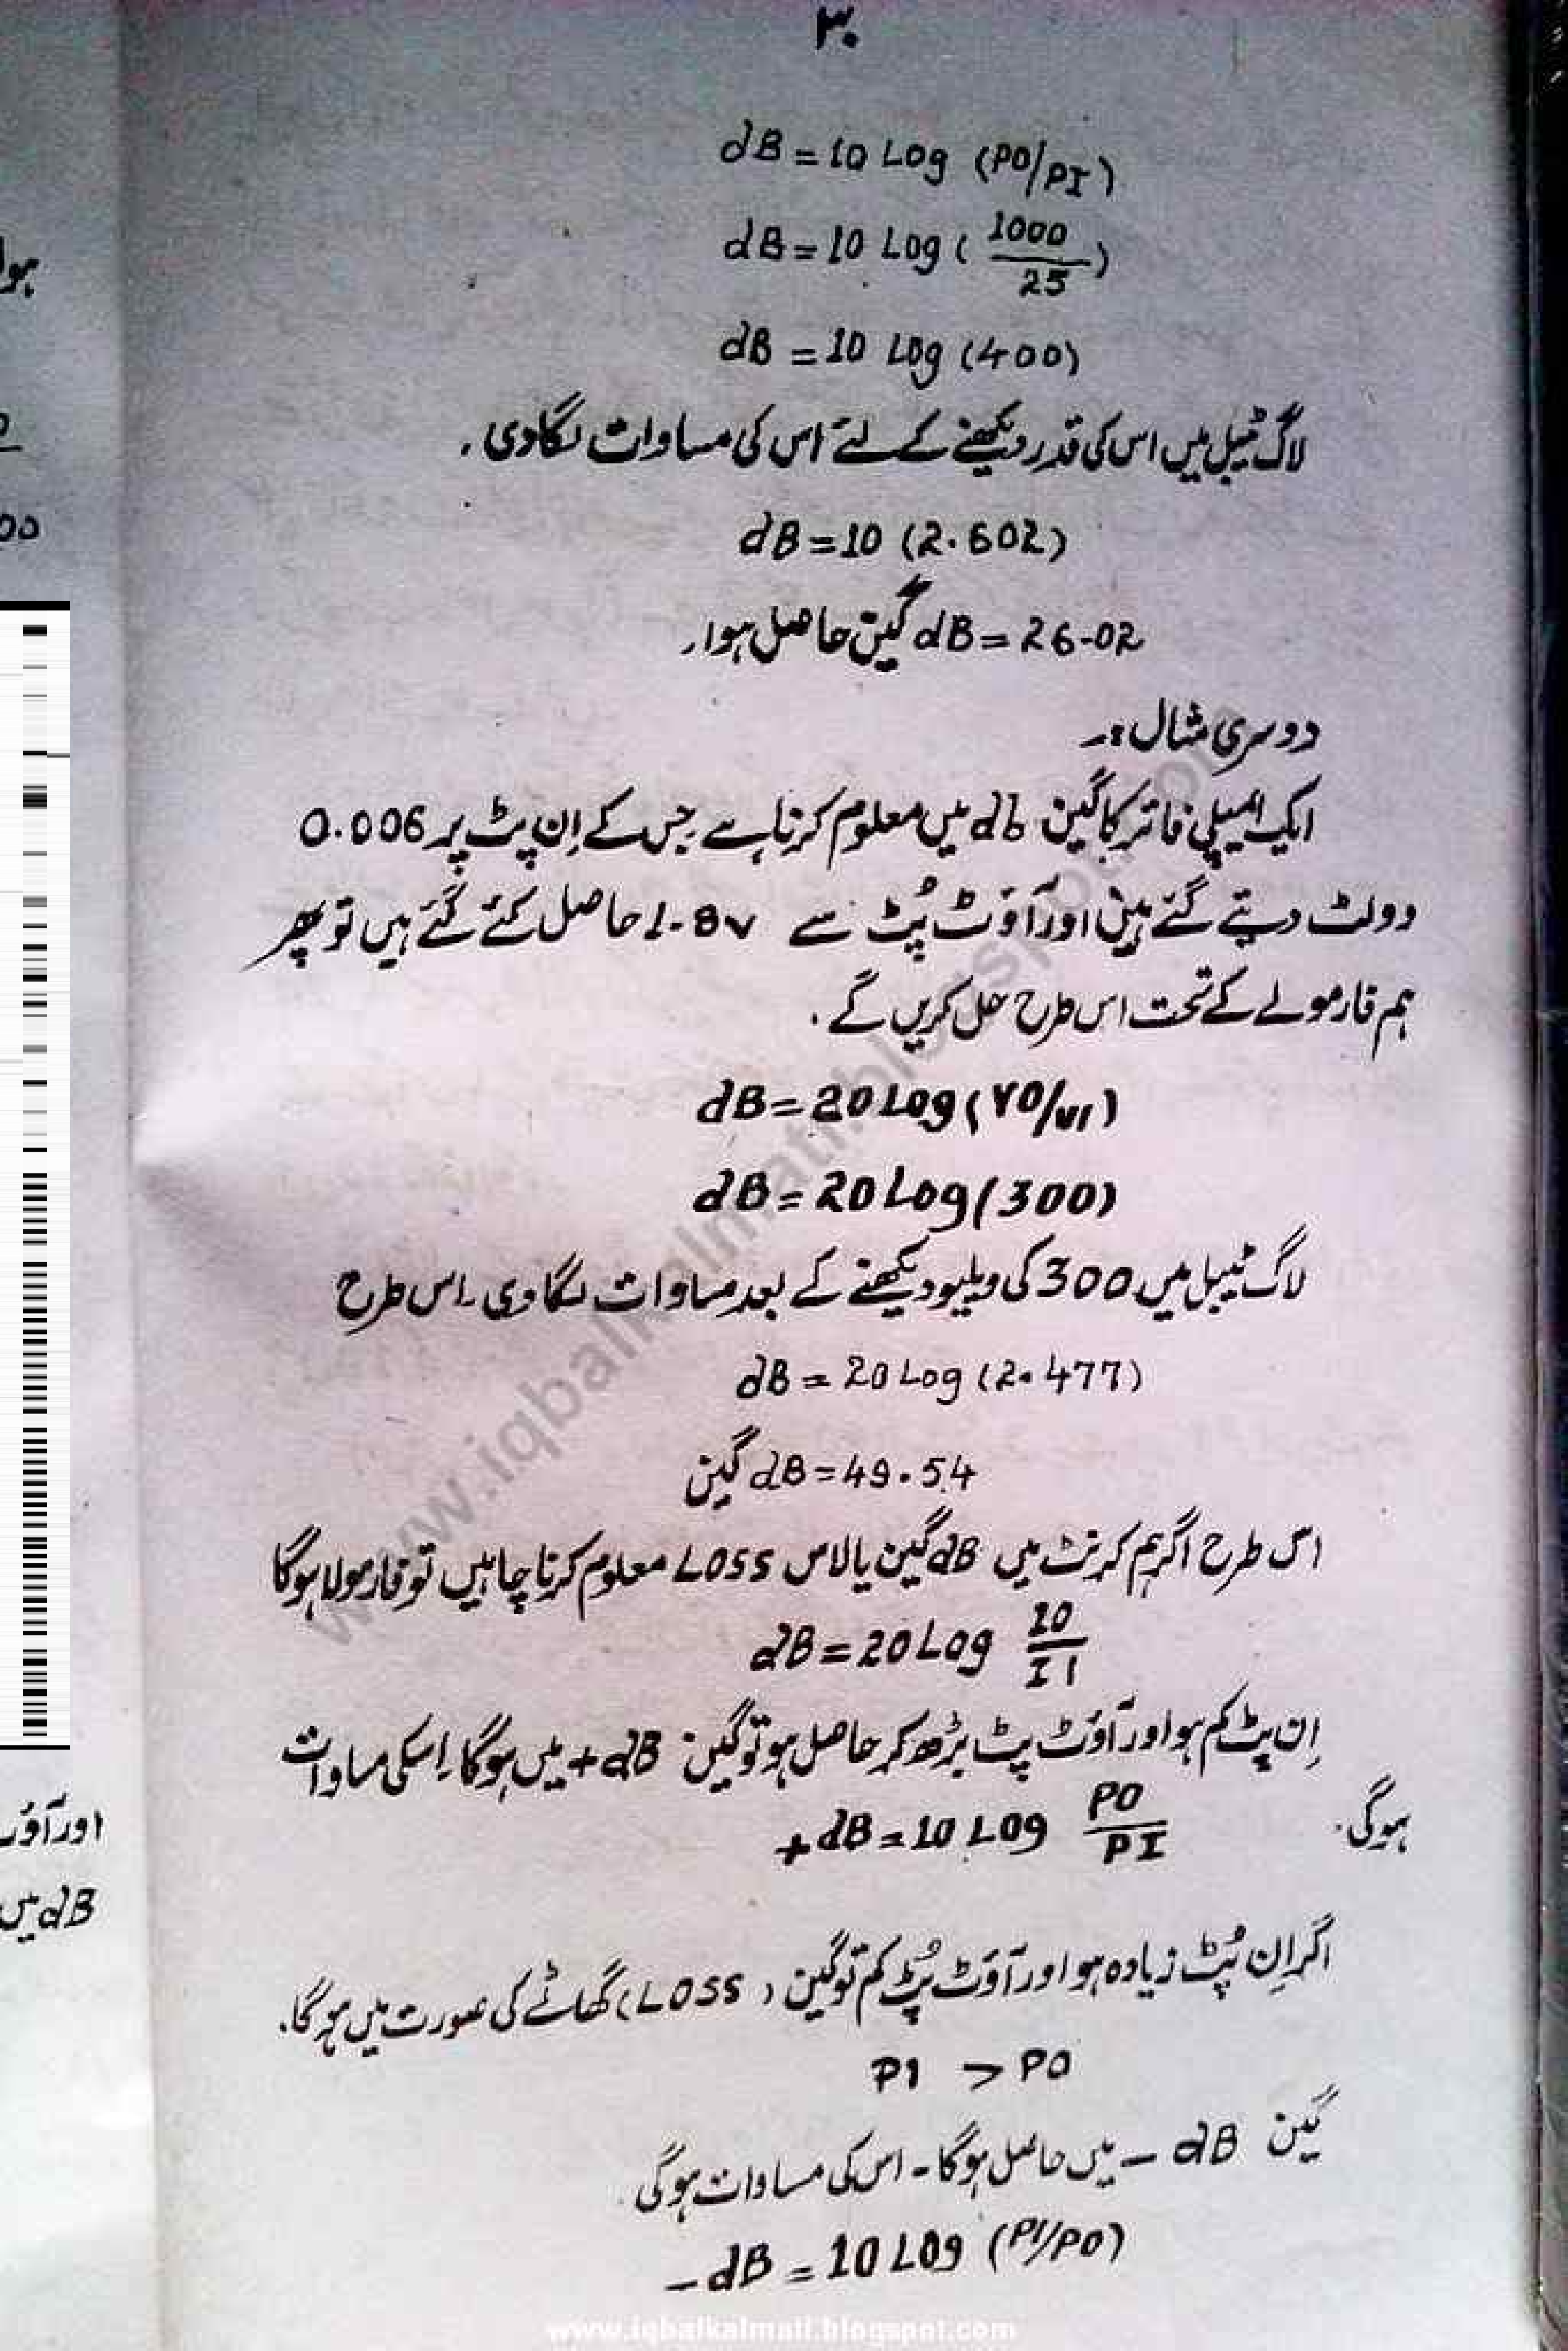 ۳۰
dB = 10 Log (PO/PI)
dB = 10 Log ( 1000/25 )
dB = 10 Log (400)
لاگ ٹیبل میں اس کی قدر دیکھنے کے لئے اس کی مساوات لگادی ۔
dB = 10 (2.602)
dB = 26-02 گین حاصل ہوا۔
دوسری مثال :۔
ایک ایمپلی فائر کا گین db میں معلوم کرنا ہے جس کے اِن پٹ پر 0.006
وولٹ دیئے گئے ہیں اور آؤٹ پُٹ سے 1.8v حاصل کئے گئے ہیں تو پھر
ہم فارمولے کے تحت اس طرح حل کریں گے ۔
dB = 20 Log (VO/VI)
dB = 20 Log (300)
لاگ ٹیبل میں 300 کی ویلیو دیکھنے کے بعد مساوات لگادی ۔ اس طرح
dB = 20 Log (2.477)
dB = 49.54 گین
اس طرح اگر ہم کرنٹ میں dB گین یا لاس LOSS معلوم کرنا چاہیں تو فارمولا ہوگا
dB = 20 Log IO/I1
اِن پٹ کم ہو اور آؤٹ پٹ بڑھ کر حاصل ہو تو گین dB+ میں ہوگا۔ اسکی مساوات
ہوگی۔ +dB = 10 LOg PO/PI
اگر اِن پُٹ زیادہ ہو اور آؤٹ پُٹ کم تو گین (LOSS) گھاٹے کی صورت میں ہوگا۔
P1 > PO
گین dB – میں حاصل ہوگا ۔ اس کی مساوات ہوگی
–dB = 10 LOg (P1/PO)
www.iqbalkalmati.blogspot.com
www.iqbalkalmati.blogspot.com
ہوا
00
اور آؤ
dB میں